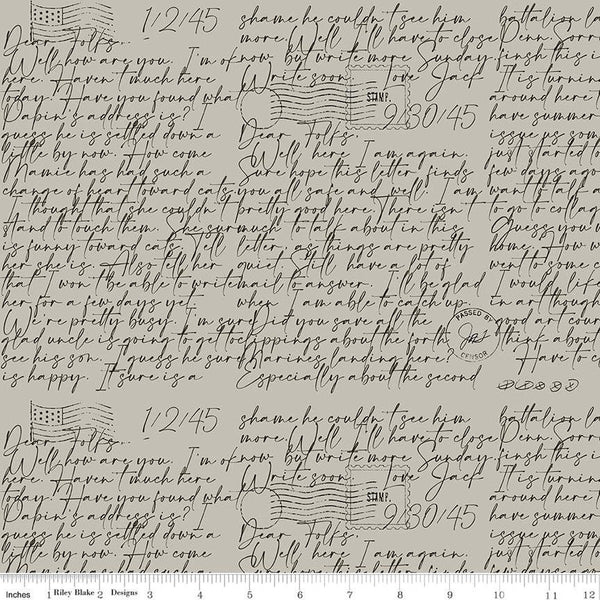 1/2/45
Dear Folks..
Well, how are you. I'm ok
here. Haven't much here
today. Have you found wha
Papin's address is? I
guess he is settled down a
little by now. How come
Mamie has had such a
change of heart toward cats.
I thought that she couldn't
stand to touch them. She sur
is funny toward cats. Tell
her she is. Also tell her
that I won't be able to write
her for a few days yet.
We're pretty busy. I'm sure
glad uncle is going to get to
see his son. I guess he sure
is happy. It sure is a
shame he couldn't see him
more. Well, I'll have to close
now but write more Sunday.
Write soon. Love Jack
STAMP.
9/30/45
Dear Folks.
Well, here I am again.
Sure hope this letter finds
you all safe and well. I am
pretty good here. There isn't
much to talk about in this
letter, as things are pretty
quiet. Still have a lot of
mail to answer. I'll be glad
when I am able to catch up.
Did you save all the
clippings about the forth
Marines landing here?
Especially about the second
PASSED BY
CENSOR
battalion la
Denn. Sorr
finsh this i
It is turnin
around here t
have summer
issue us som
just started to
want to tall a
to go to collag
Guess you w
home. How w
went to some c
I would life
in art though
good art cour
think about
Have to c
1/2/45
Dear Folks..
Well, how are you. I'm ok
here. Haven't much here
today. Have you found wha
Papin's address is? I
guess he is settled down a
little by now. How come
Mamie has had such a
shame he couldn't see him
more. Well, I'll have to close
now but write more Sunday.
Write soon. Love Jack
STAMP.
9/30/45
Dear Folks.
Well, here I am again.
Sure hope this letter finds
battalion la
Denn. Sorr
finsh this i
It is turnin
around here t
have summer
issue us som
just started to
Inches 1 Riley Blake 2 Designs 3 4 5 6 7 8 9 10 11 12